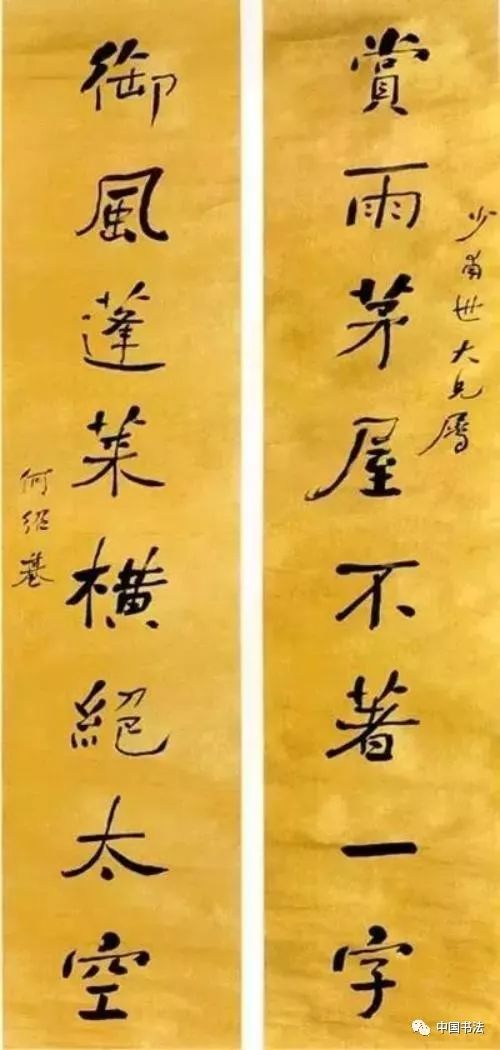 少甫世大兄属
賞雨茅屋不著一字
御風蓬莱横絕太空
何绍基
中国书法